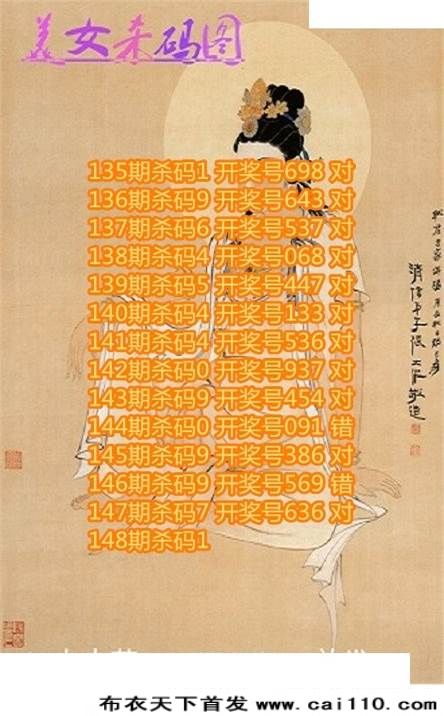 美女杀码图
135期杀码1 开奖号698 对
136期杀码9 开奖号643 对
137期杀码6 开奖号537 对
138期杀码4 开奖号068 对
139期杀码5 开奖号447 对
140期杀码4 开奖号133 对
141期杀码4 开奖号536 对
142期杀码0 开奖号937 对
143期杀码9 开奖号454 对
144期杀码0 开奖号091 错
145期杀码9 开奖号386 对
146期杀码9 开奖号569 错
147期杀码7 开奖号636 对
148期杀码1
布衣天下首发 www.cai110.com